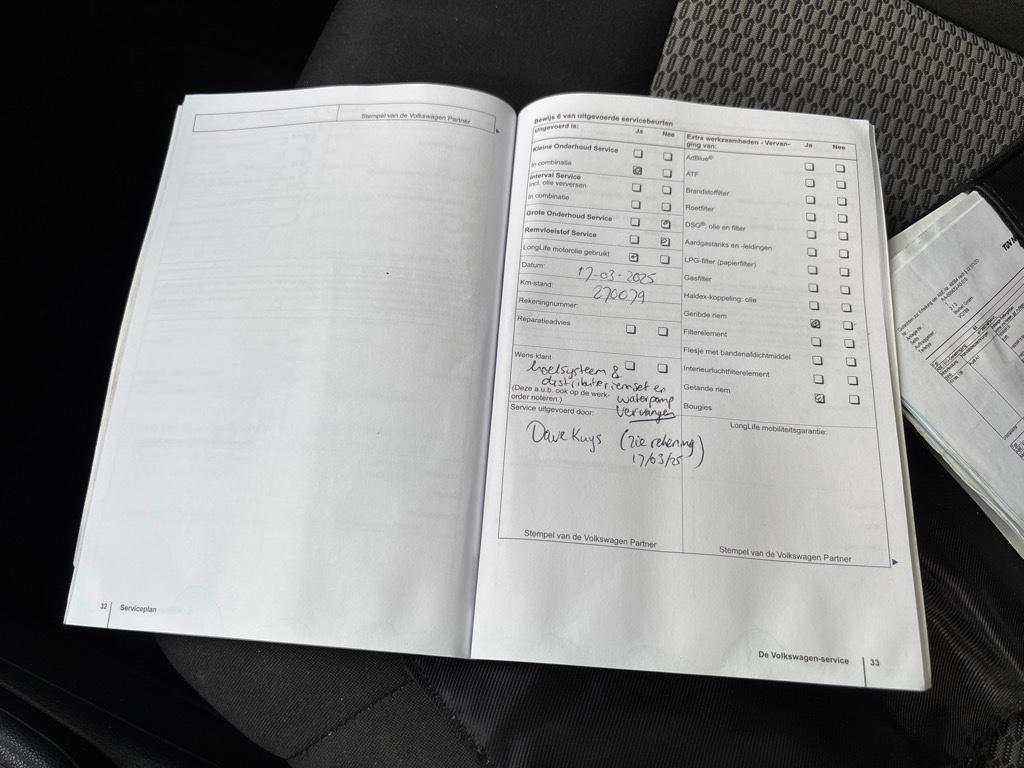 Stempel van de Volkswagen Partner
32 Serviceplan
Bewijs 6 van uitgevoerde servicebeurten
Uitgevoerd is: Ja Nee
Kleine Onderhoud Service
In combinatie
Interval Service
incl. olie verversen
In combinatie
Grote Onderhoud Service
Remvloeistof Service
LongLife motorolie gebruikt
Datum: 17-03-2025
Km-stand: 270079
Rekeningnummer:
Reparatieadvies
Wens klant
koelsysteem &
distributieriemset en
(Deze a.u.b. ook op de werk-
order noteren.) waterpomp
vervangen
Service uitgevoerd door:
Dave Kuys (zie rekening)
17/03/25
Stempel van de Volkswagen Partner
Extra werkzaamheden - Vervan-
ging van: Ja Nee
AdBlue®
ATF
Brandstoffilter
Roetfilter
DSG®: olie en filter
Aardgastanks en -leidingen
LPG-filter (papierfilter)
Gasfilter
Haldex-koppeling: olie
Geribde riem
Filterelement
Flesje met bandenafdichtmiddel
Interieurluchtfilterelement
Getande riem
Bougies
LongLife mobiliteitsgarantie:
Stempel van de Volkswagen Partner
De Volkswagen-service 33